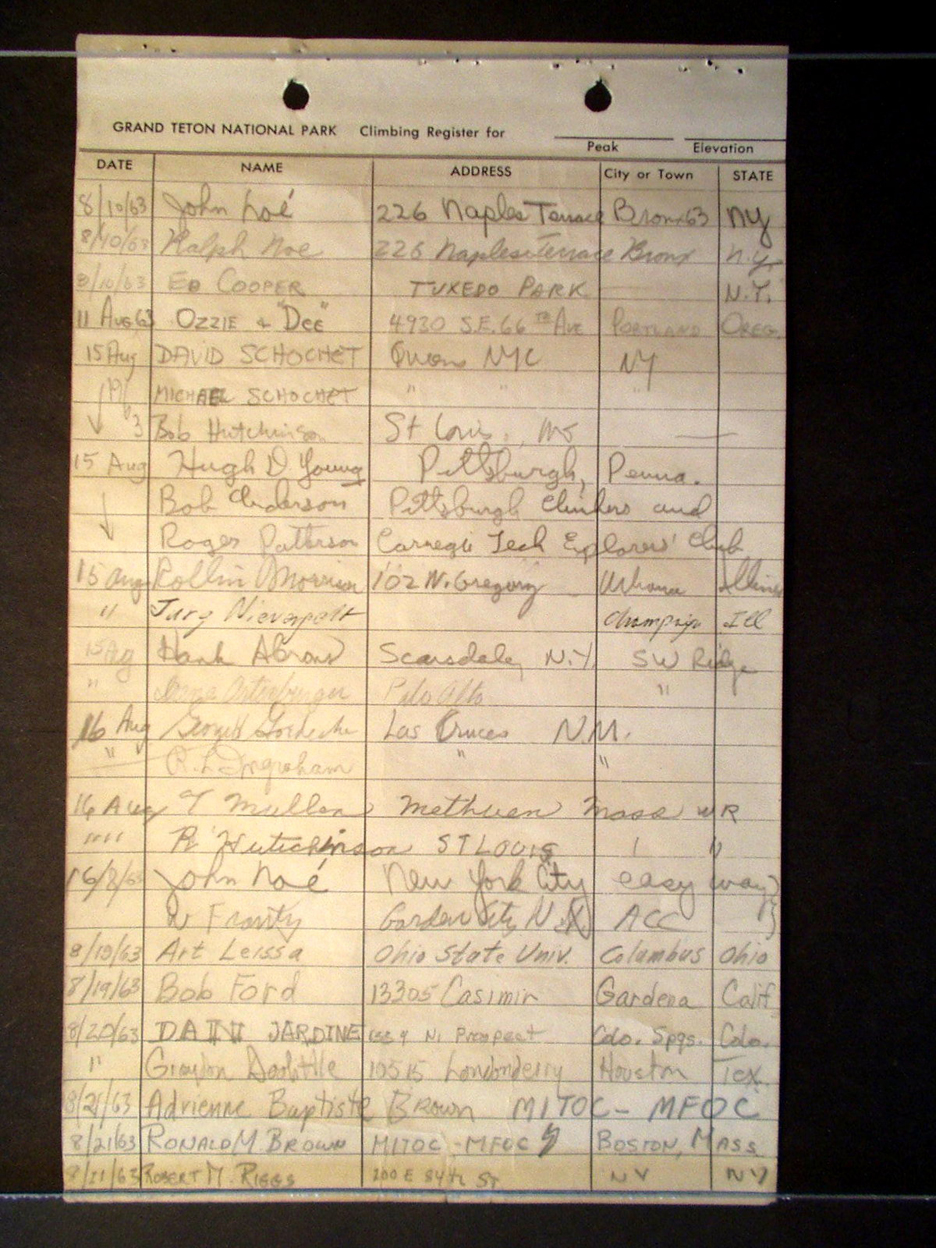 GRAND TETON NATIONAL PARK Climbing Register for
Peak Elevation
DATE NAME ADDRESS City or Town STATE
8/10/63 John Noé 226 Naples Terrace Bronx 63 NY
8/10/63 Ralph Noe 226 Naples Terrace Bronx N.Y.
8/10/63 ED COOPER TUXEDO PARK N.Y.
11 Aug 63 OZZIE & "DEE" 4930 S.E. 66TH AVE PORTLAND OREG.
15 Aug DAVID SCHOCHET NYC NY
MICHAEL SCHOCHET " "
Bob Hutchinson St Louis, Mo —
15 Aug Hugh D. Young Pittsburgh, Penna.
Bob Anderson Pittsburgh Climbers and
Roger Patterson Carnegie Tech Explorers' Club
15 Aug Rollin Morrison 102 N. Gregory Urbana Illinois
" Jurg Nievergelt Champaign Ill
15 Aug Hank Abrons Scarsdale, N.Y. SW Ridge
" Ortenburger Palo Alto "
16 Aug Las Cruces N.M.
" R. L. Ingraham " "
16 Aug T Mullen Methuen Mass WR
"" R Hutchinson ST LOUIS "
16/8/63 John Noé New York City easy way
Garden City N.Y. ACC
8/19/63 Art Leissa Ohio State Univ. Columbus Ohio
8/19/63 Bob Ford 13305 Casimir Gardena Calif
8/20/63 DAIN JARDINE N. Prospect Colo. Spgs. Colo.
" Doolittle 10515 Londonderry Houston Tex.
8/21/63 Adrienne Baptiste Brown MITOC - MFOC
8/21/63 RONALD M BROWN MITOC - MFOC BOSTON, MASS
8/21/63 ROBERT M. RIGGS 200 E 84th ST NY NY